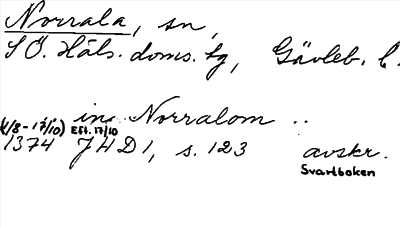 Norrala, sn,
SÖ. Häls. doms. hg, Gävleb. l.
in Norralom ..
(1/8-17/10) Eft. 17/10
1374 JHD 1, s. 123 avskr.
Svartboken